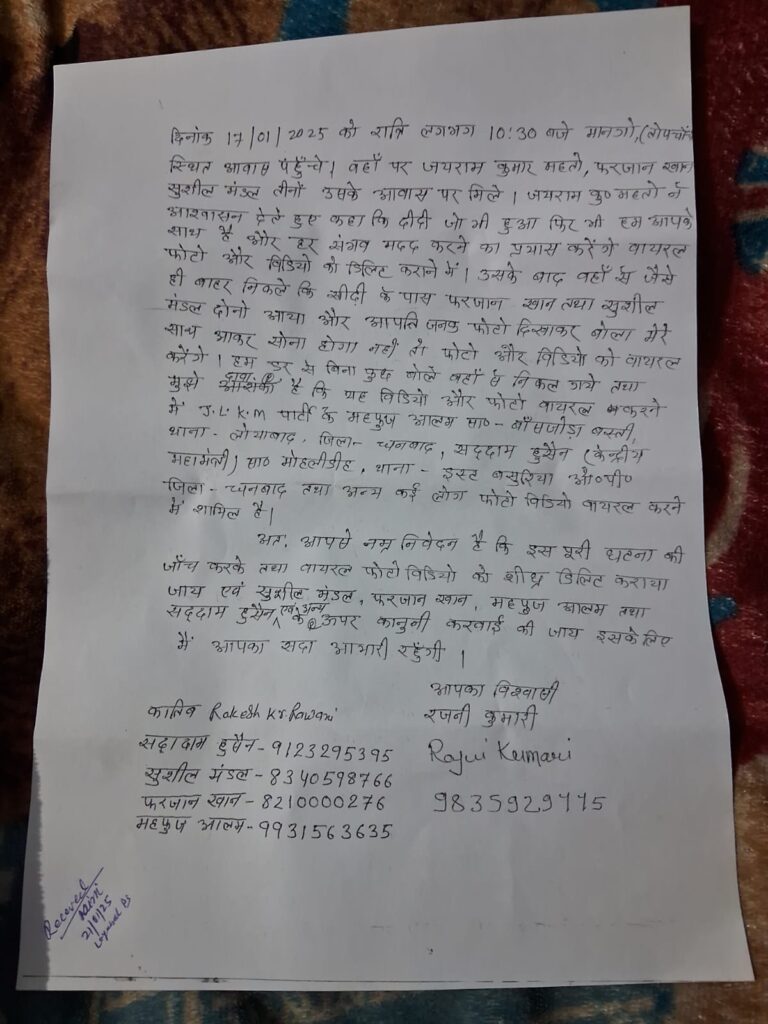 दिनांक 17/01/2025 को रात्रि लगभग 10:30 बजे मानगो, (तोपचाँची
स्थित आवास पहुँचे। वहाँ पर जयराम कुमार महतो, फरजान खान
सुशील मंडल तीनों उसके आवास पर मिले। जयराम कु० महतो ने
आश्वासन देते हुए कहा कि दीदी जो भी हुआ फिर भी हम आपके
साथ है और हर संभव मदद करने का प्रयास करेंगे वायरल
फोटो और विडियो को डिलिट कराने में। उसके बाद वहाँ से जैसे
ही बाहर निकले कि सीढी के पास फरजान खान तथा सुशील
मंडल दोनो आया और आपति जनक फोटो दिखाकर बोला मेरे
साथ आकर सोना होगा नहीं तो फोटो और विडियो को वायरल
करेंगे। हम डर से बिना कुछ बोले वहाँ से निकल गये तथा
मुझे है कि यह विडियो और फोटो वायरल करने
में J.L.K.M पार्टी के महफुज आलम सा०- बाँसजोड़ा बस्ती,
थाना- लोयाबाद, जिला- धनबाद, सद्दाम हुसैन (केन्द्रीय
महामंत्री) सा० मोहलीडीह, थाना - इस्ट बसुरिया ओ०पी०
जिला- धनबाद तथा अन्य कई लोग फोटो विडियो वायरल करने
में शामिल है।
अत, आपसे नम्र निवेदन है कि इस पूरी घटना की
जाँच करके तथा वायरल फोटो विडियो को शीघ्र डिलिट कराया
जाय एवं सुशील मंडल, फरजान खान, महफुज आलम तथा
सद्दाम हुसैन एवं अन्य के ऊपर कानुनी करवाई की जाय इसके लिए
मैं आपका सदा आभारी रहुँगी।
आपका विश्वासी
कातिव Rakesh Kr Rawani रजनी कुमारी
सद्दाम हुसैन - 9123295395 Rajni Kumari
सुशील मंडल - 8340598766
फरजान खान - 8210000276 9835929775
महफुज आलम - 9931563635
Received
21/01/25
Loyabad PS